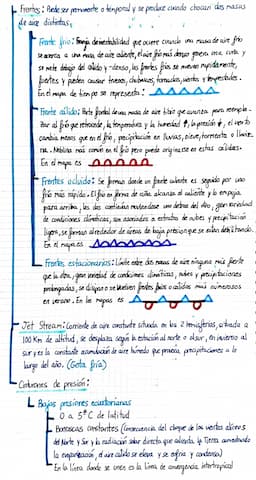 Frentes: Puede ser permanente o temporal y se produce cuando chocan dos masas
de aire distintas:
Frente frío: Franja de inestabilidad que ocurre cuando una masa de aire frío
se acerca a una masa de aire caliente, el aire frío más denso genera una cuña y
se mete debajo del cálido y menos denso, los frentes fríos se mueven rápidamente,
fuertes y pueden causar truenos, chubascos, tornados, vientos y tempestades.
En el mapa de tiempo se representa:
Frente cálido: Parte frontal de una masa de aire tibio que avanza para reempla-
zar al frío que retrocede, la temperatura y la humedad, la presión, el viento
cambia menos que en el frío, precipitación en lluvias, nieve, tormenta o lloviz-
na. Neblina más común en el frío pero puede originarse en estas cálidas.
En el mapa es
Frentes ocluido: Se forman donde un frente caliente es seguido por uno
frío más rápido. El frío en forma de cuña alcanza al caliente y lo empuja
para arriba, los dos continúan moviéndose uno detrás del otro, gran variedad
de condiciones climáticas, son asociados a estratos de nubes y precipitación
ligera, se forman alrededor de áreas de baja presión que se están debilitando.
En el mapa es
Frentes estacionarios: Límite entre dos masas de aire ninguna más fuerte
que la otra, gran variedad de condiciones climáticas, nubes y precipitaciones
prolongadas, se disipan o se vuelven frentes fríos o cálidos más numerosos
en verano. En los mapas es
Jet Stream: Corriente de aire constante situada en los 2 hemisferios, situada a
100 Km de altitud, se desplaza según la estación al norte o al sur, en invierno al
sur y es la constante acumulación de aire húmedo que provoca precipitaciones a lo
largo del año. (Gota fría)
Cinturones de presión:
Bajas presiones ecuatoriales
0 a 5°C de latitud
Borrascas constantes (consecuencia del choque de los vientos alisios
del Norte y Sur y la radiación solar directa que calienta la Tierra aumentando
la evaporación, el aire cálido se eleva y se enfría y condensa)
En la línea donde se unen es la línea de convergencia intertropical